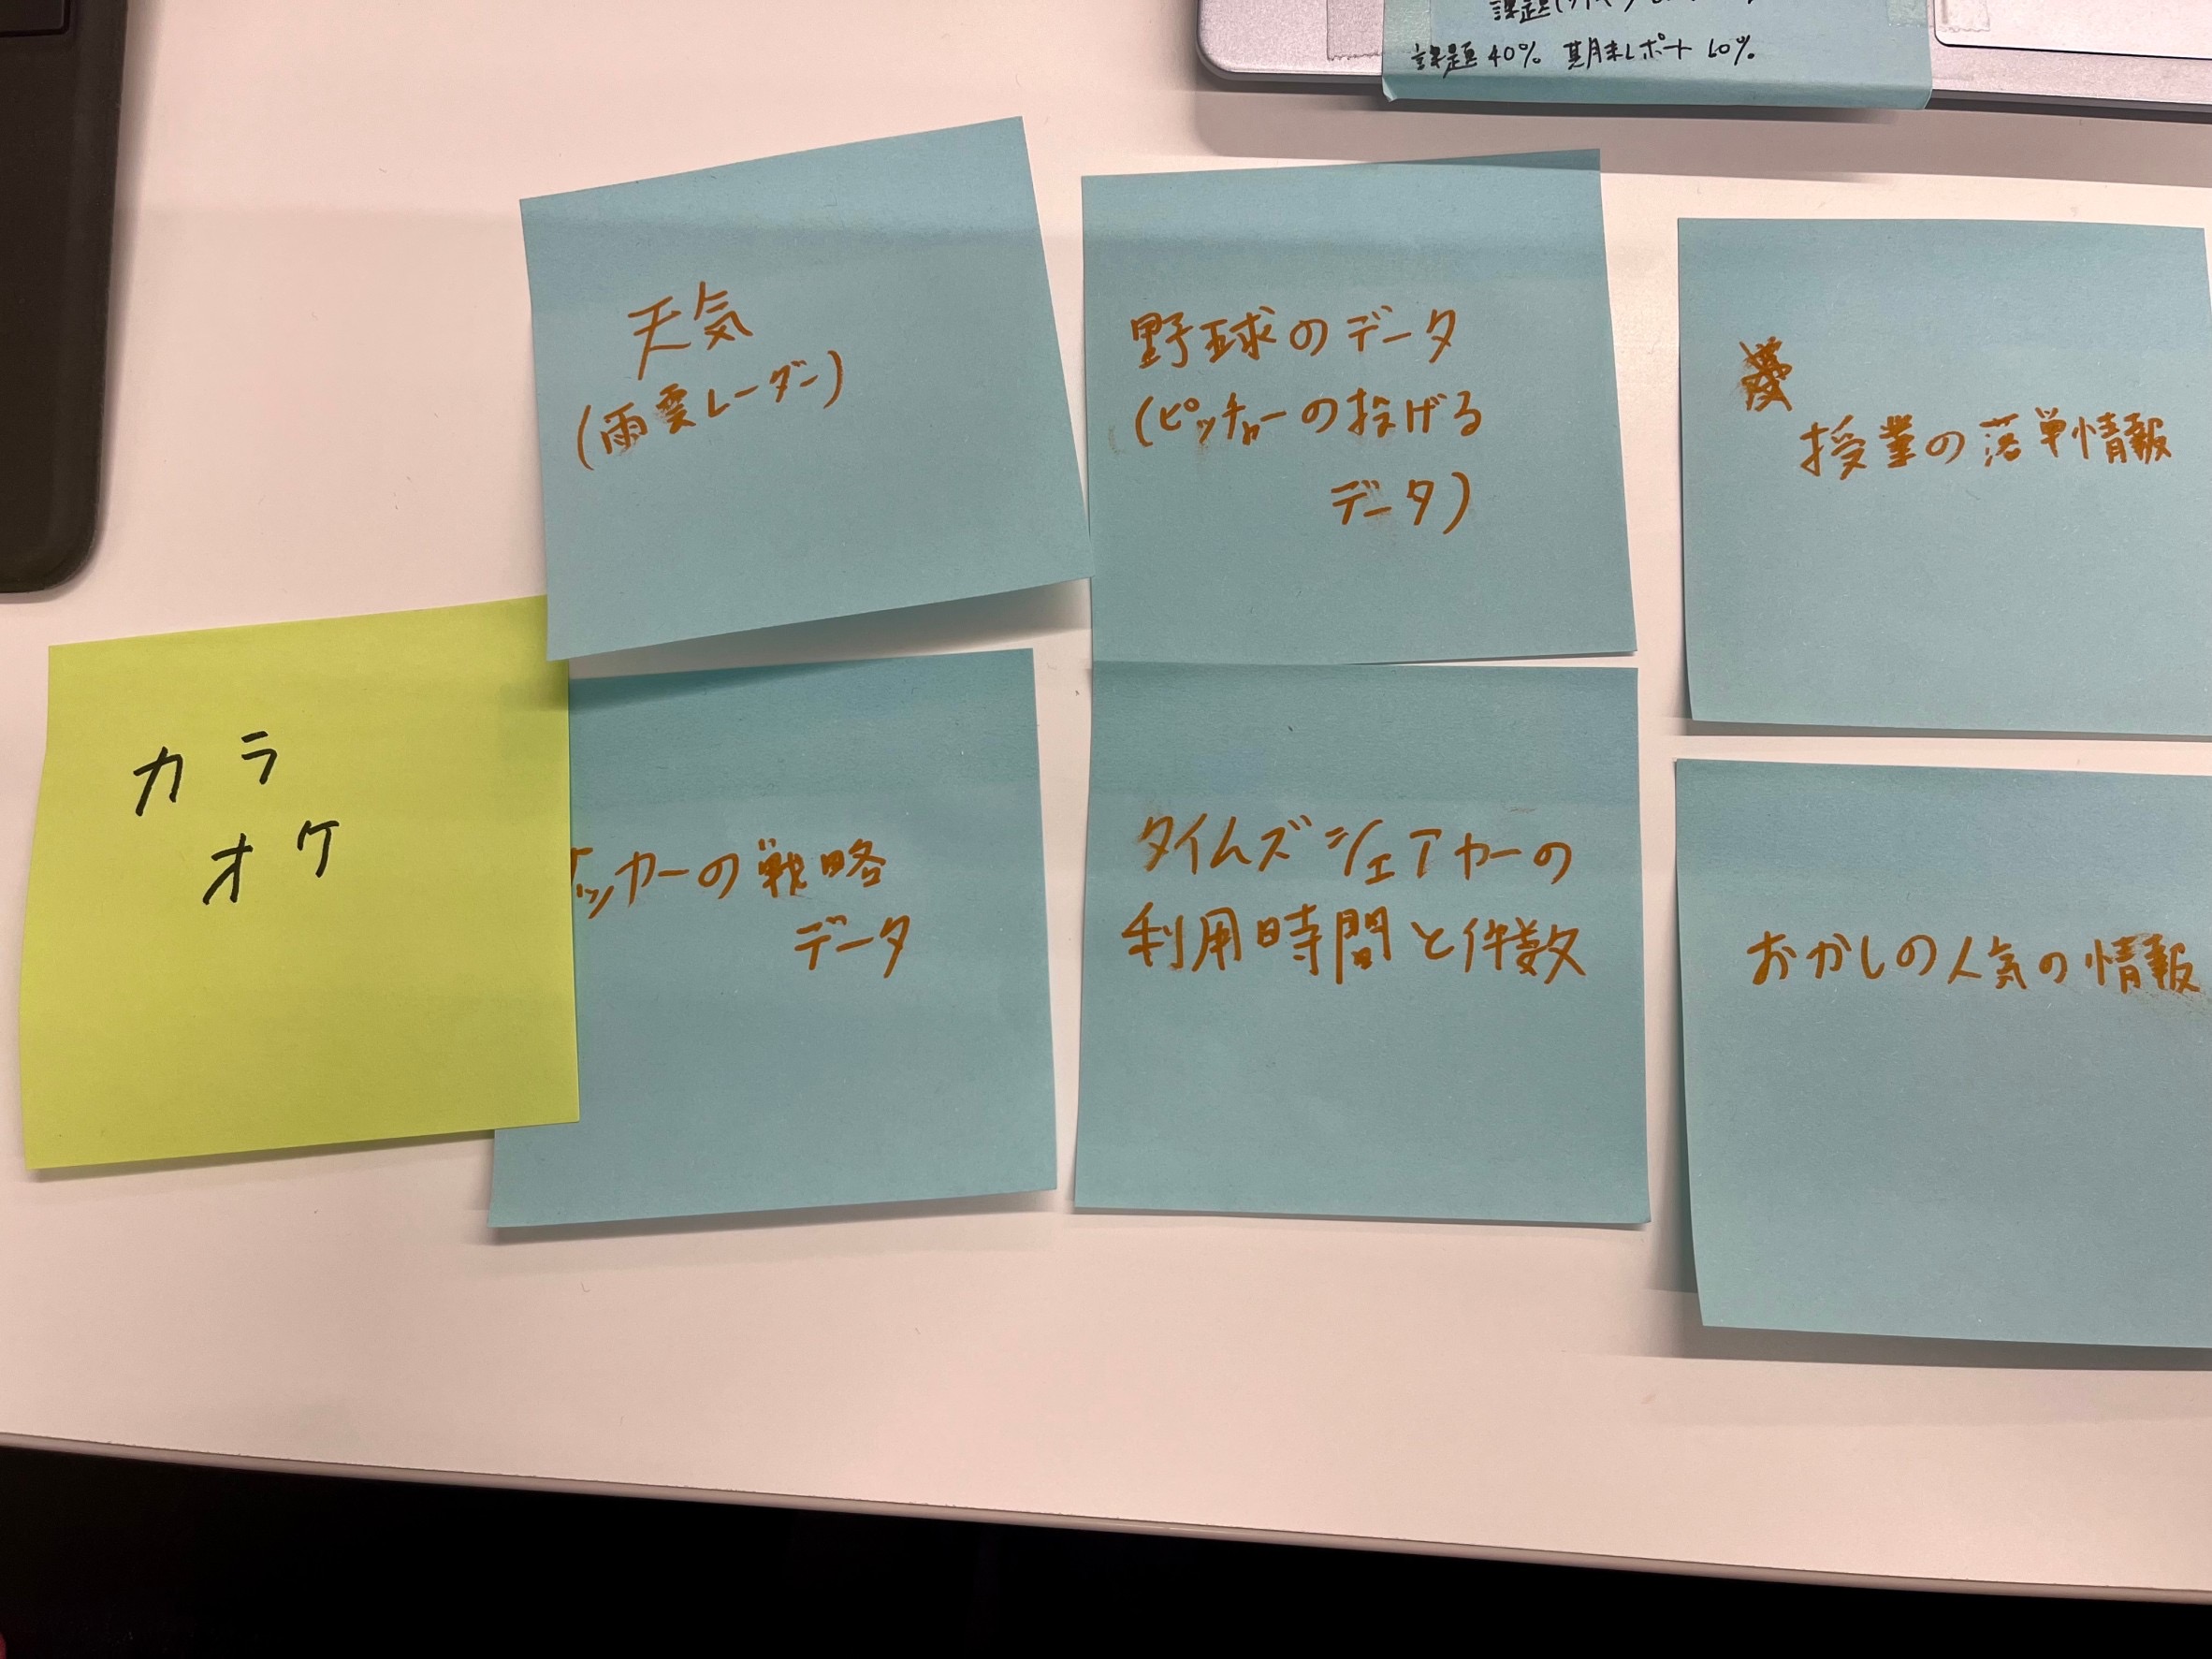 課題 40% 期末レポート 60%
天気
(雨雲レーダー)
野球のデータ
(ピッチャーの投げる
データ)
授業の落単情報
カラ
オケ
ッカーの戦略
データ
タイムズシェアカーの
利用時間と件数
おかしの人気の情報